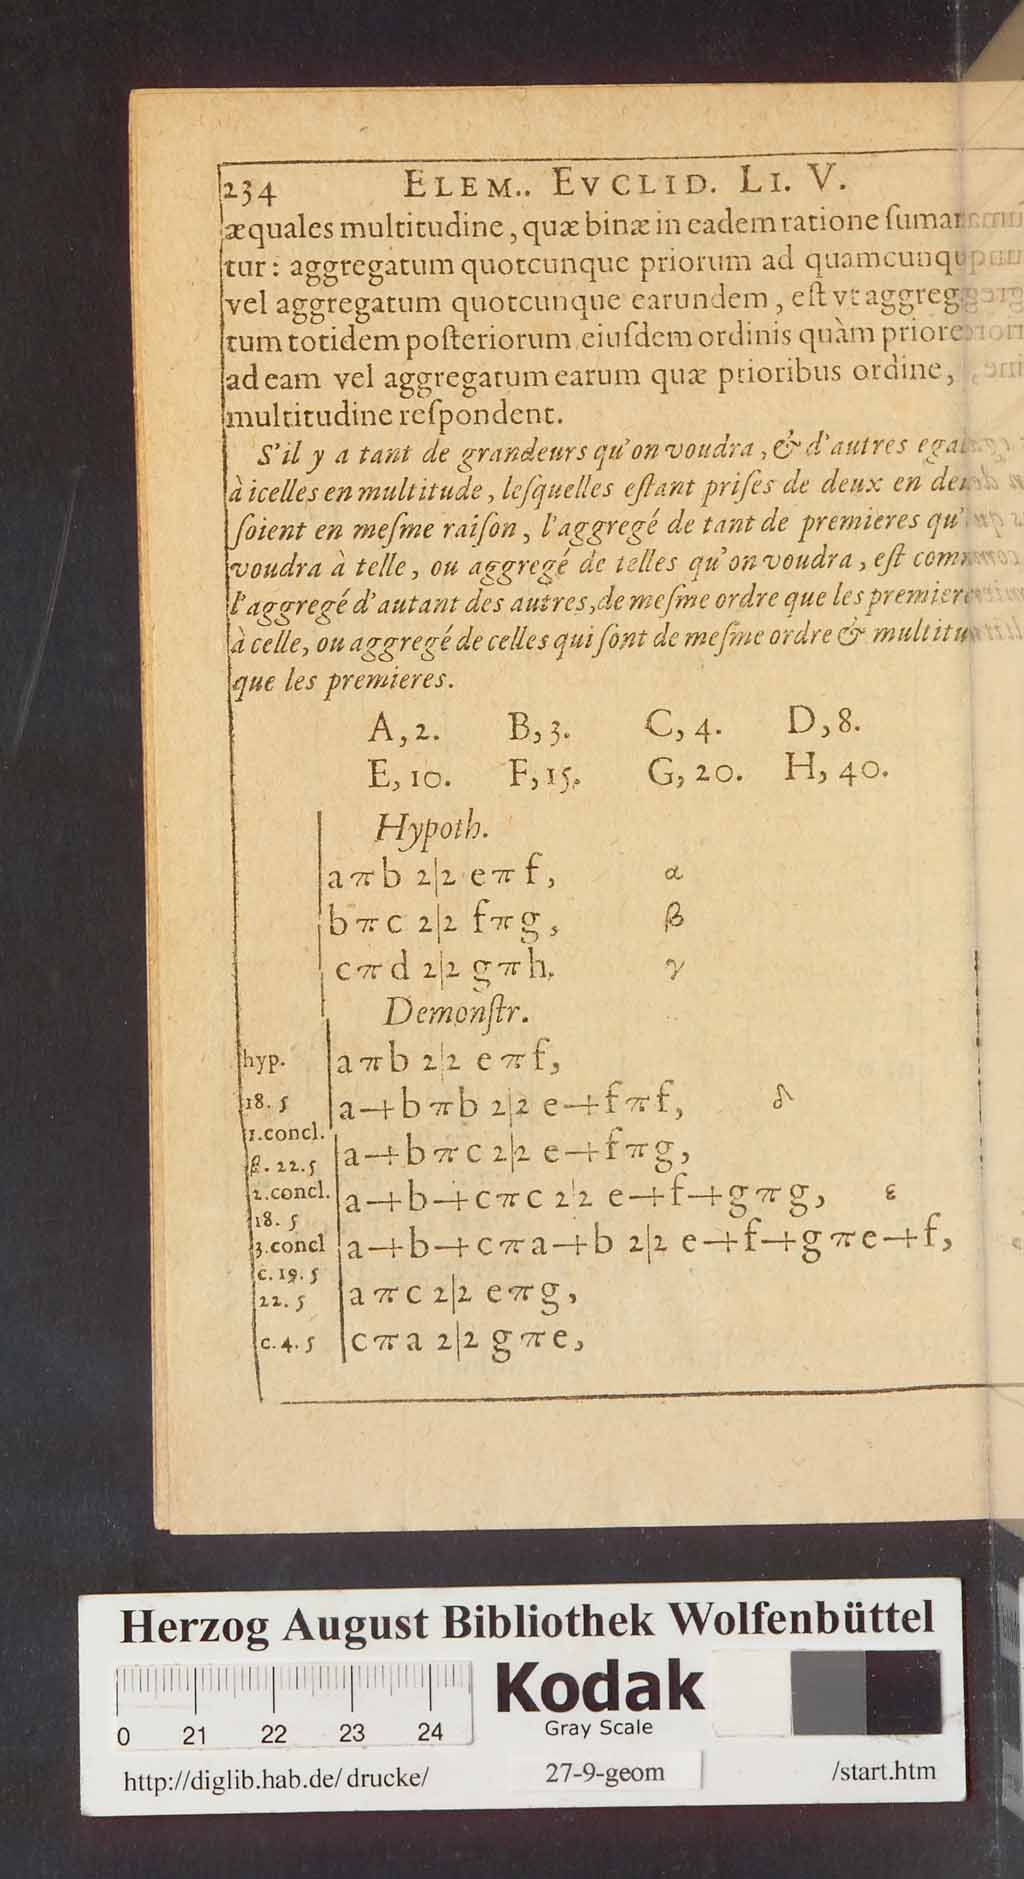 234 ELEM.. EVCLID. LI. V.
æquales multitudine, quæ binæ in eadem ratione
tur: aggregatum quotcunque priorum ad
vel aggregatum quotcunque earundem, est vt
tum totidem posteriorum eiusdem ordinis quàm
ad eam vel aggregatum earum quæ prioribus ordine,
multitudine respondent.
S'il y a tant de grandeurs qu'on voudra, & d'autres
à icelles en multitude, lesquelles estant prises de deux en
soient en mesme raison, l'aggregé de tant de premieres
voudra à telle, ou aggregé de telles qu'on voudra, est
l'aggregé d'autant des autres, de mesme ordre que les
à celle, ou aggregé de celles qui sont de mesme ordre &
que les premieres.
A, 2. B, 3. C, 4. D, 8.
E, 10. F, 15. G, 20. H, 40.
Hypoth.
a π b 2|2 e π f, α
b π c 2|2 f π g, β
c π d 2|2 g π h. γ
Demonstr.
hyp. a π b 2|2 e π f,
18. 5 a + b π b 2|2 e + f π f, δ
1.concl.
β. 22. 5 a + b π c 2|2 e + f π g,
2.concl. a + b + c π c 2|2 e + f + g π g, ε
18. 5
3.concl a + b + c π a + b 2|2 e + f + g π e + f,
c. 19. 5
22. 5 a π c 2|2 e π g,
c. 4. 5 c π a 2|2 g π e,
Herzog August Bibliothek Wolfenbüttel
Kodak
Gray Scale
0 21 22 23 24
http://diglib.hab.de/drucke/ 27-9-geom /start.htm